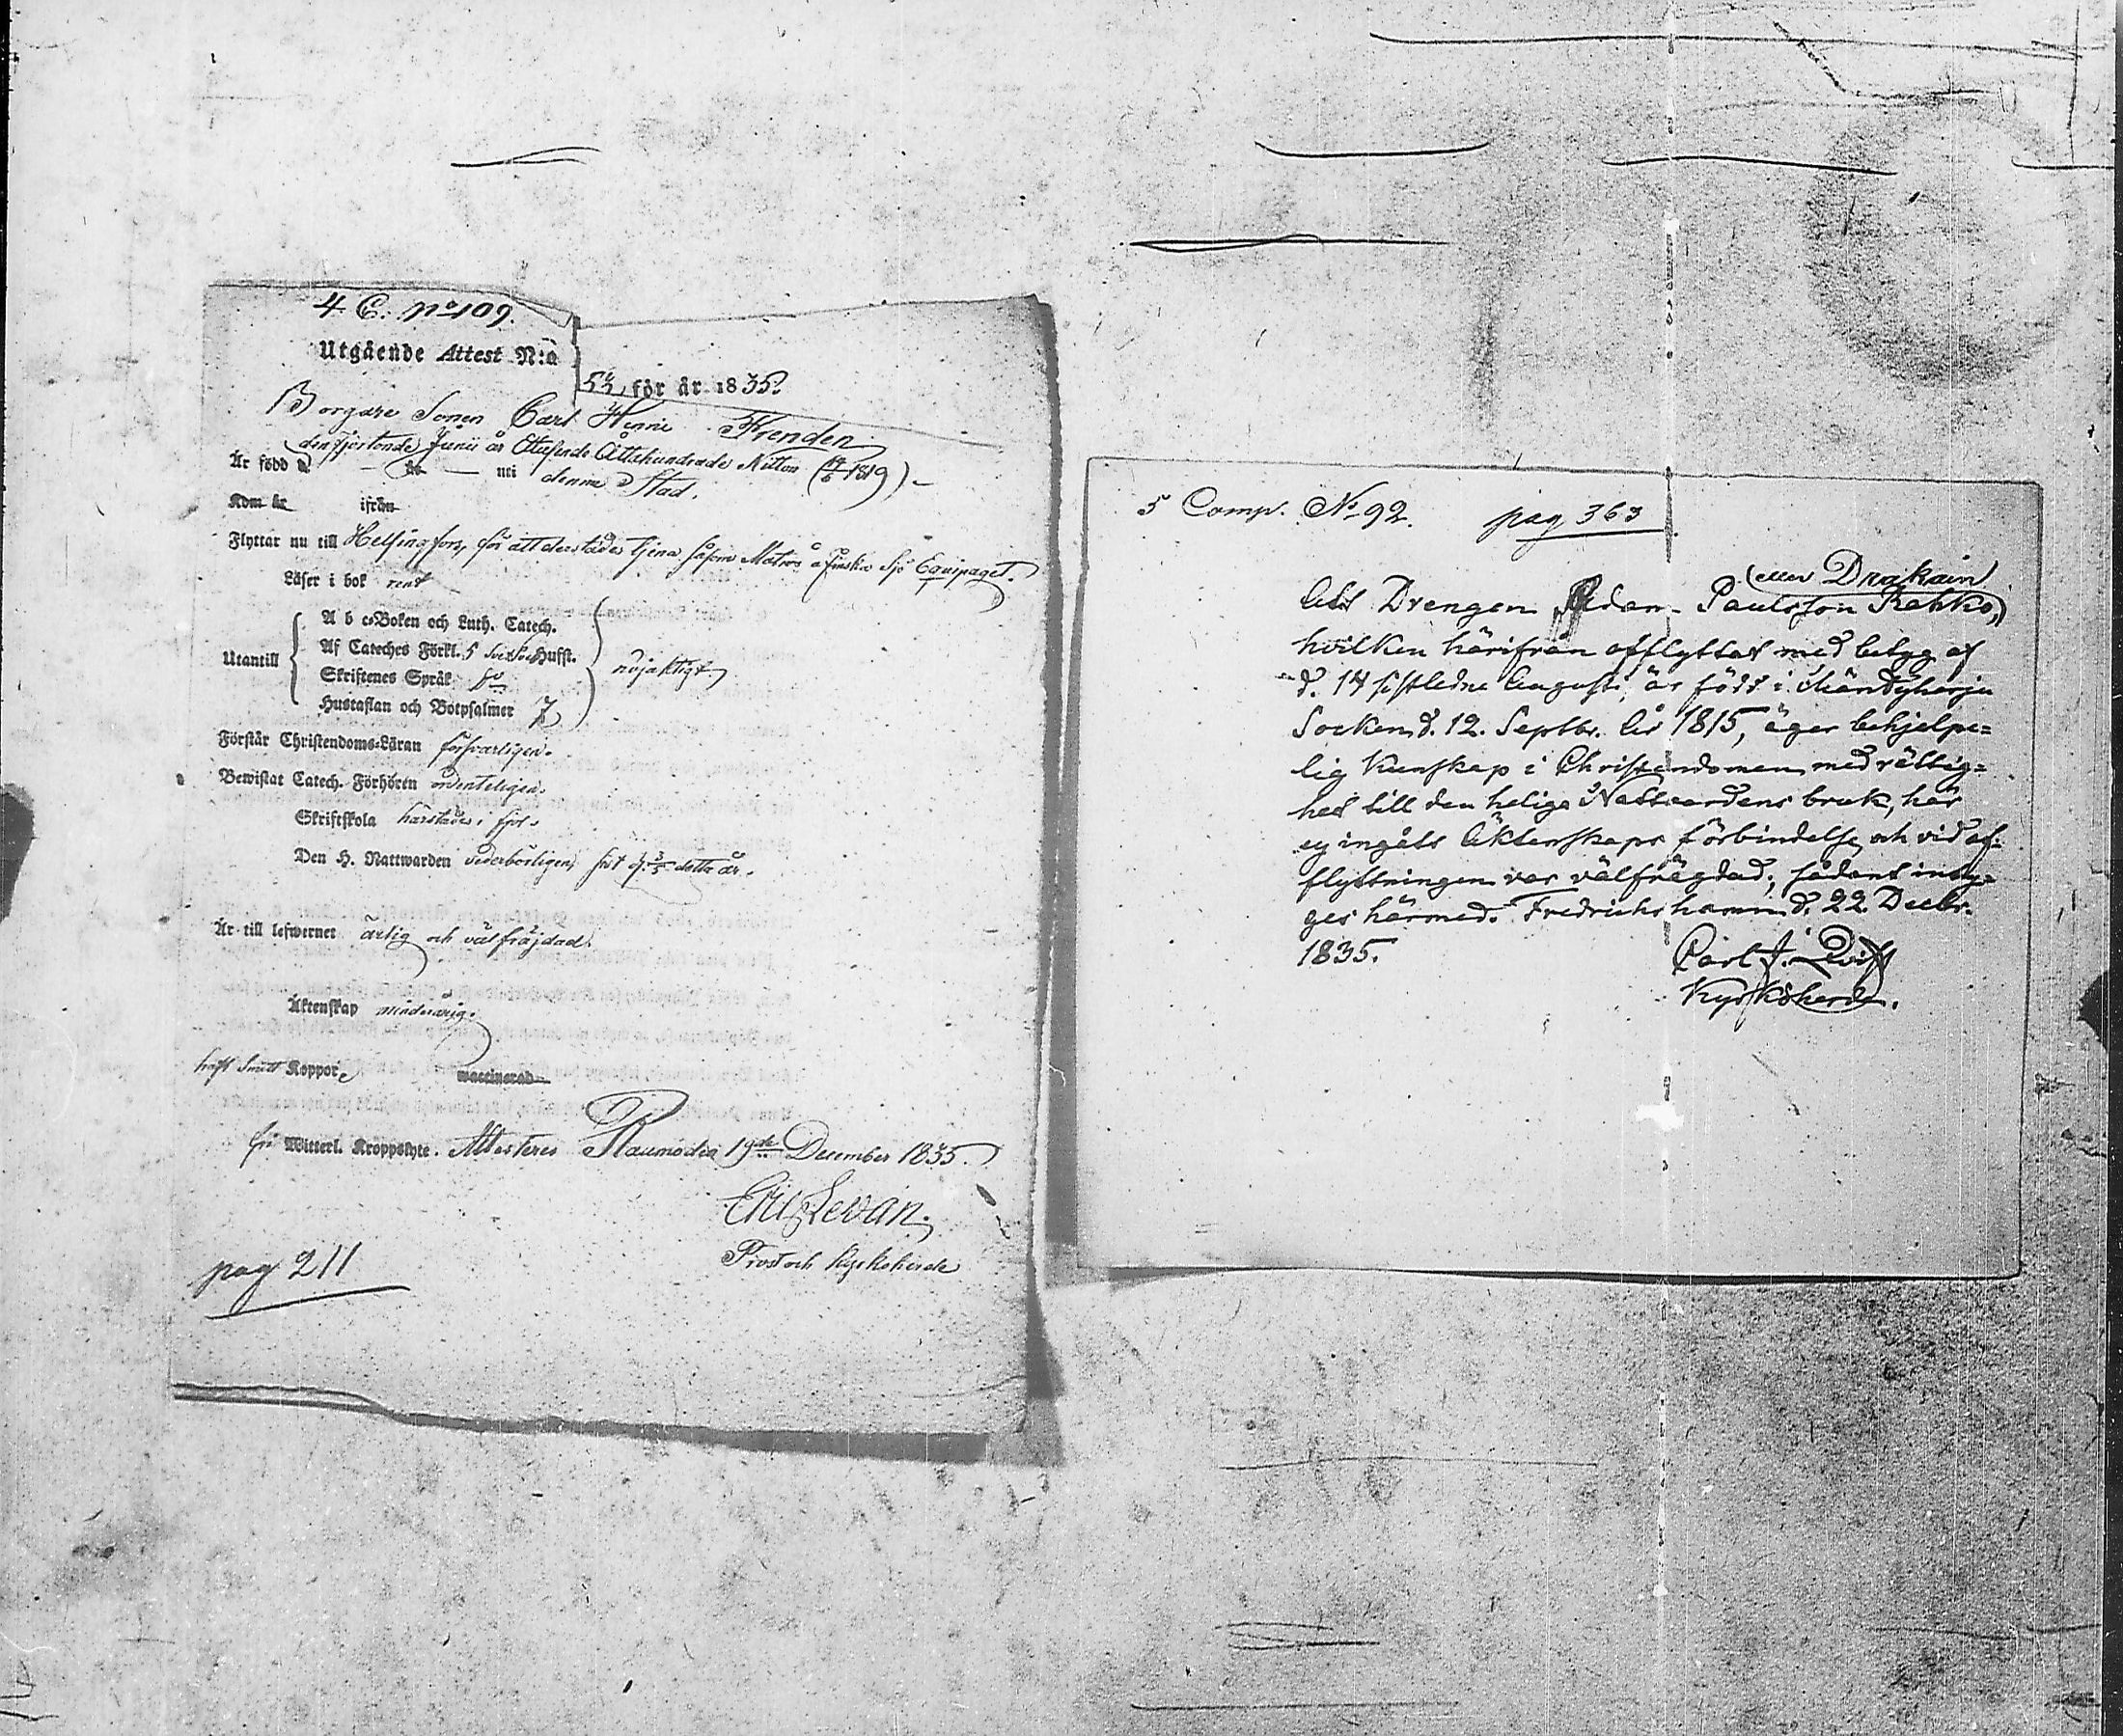 4 C. No 109.
Utgående Attest N:o
53 för år 1835.
Borgare Sonen Carl Henric Frenden
den fjortonde Junii år Ettusende Åttahundrade Nitton (14/6 1819)
Är född i denna Stad.
Kom år ifrån
Flyttar nu till Helsingfors, för att derstädes tjena såsom Matros å Finska Sjö Equipaget.
Läser i bok rent
A b c-Boken och Luth. Catech.
Af Cateches Förkl. 5 Hufst.
Utantill nöjaktigt
Skriftenes Språk
Hustaflan och Botpsalmer 7
Förstår Christendoms-Läran försvarligen.
Bewistat Catech. Förhören ordenteligen.
Skriftskola härstädes i fjol.
Den H. Nattwarden vederbörligen, sist d. 3/5 detta år.
Är till lefwernet ärlig och välfräjdad.
Äktenskap minderårig.
haft Smått Koppor. waccinerad
fri Witterl. Kroppslyte. Attesteres Raumo den 19de December 1835.
Eric Levan.
Prost och Kyrkoherde
pag 211
5 Comp. No 92. pag 363
(eller Drakain)
Att Drengen Adam Paulsson Rahko,
hvilken härifrån afflyttat med betyg af
d. 14 sistledne Augusti, är född i Mäntyharju
Socken d. 12. Septbr. År 1815, äger behjelpe=
lig Kunskap i Christendomen med rättig=
het till den heliga Nattvardens bruk, har
ej ingått Äktenskaps förbindelse och vid af=
flyttningen var välfrägdad, sådant inty=
gas härmed. Fredrichshamn d. 22 Decbr.
1835.
Carl J. Qvist
Kyrkoherde.